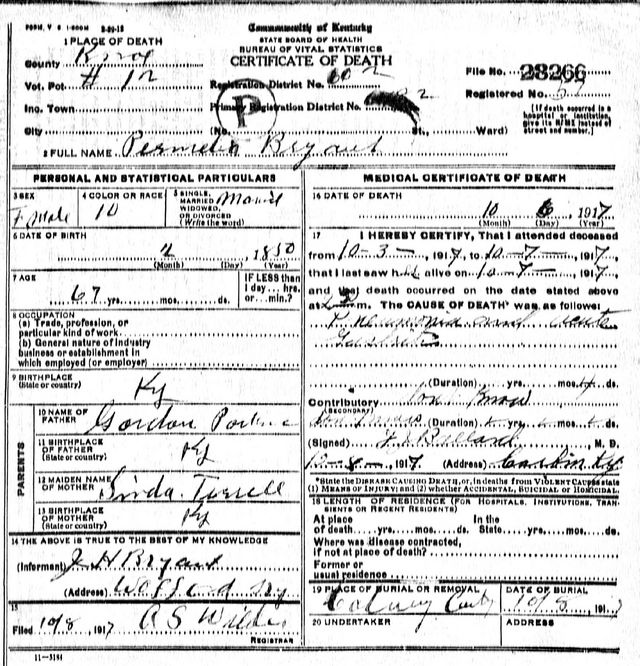 FORM. V S 1-500M 3-20-15
Commonwealth of Kentucky
STATE BOARD OF HEALTH
BUREAU OF VITAL STATISTICS
CERTIFICATE OF DEATH
1 PLACE OF DEATH
County Knox
Vot. Pct # 12
Inc. Town
City
Registration District No. 602
Primary Registration District No.
(No. St., Ward)
File No. 28266
Registered No. 57
(If death occurred in a hospital or institution, give its NAME instead of street and number.)
P
2 FULL NAME Permelia Bryant
PERSONAL AND STATISTICAL PARTICULARS
3 SEX
F male
4 COLOR OR RACE
W
5 SINGLE, MARRIED WIDOWED, OR DIVORCED (Write the word)
Married
6 DATE OF BIRTH
2 1850
(Month) (Day) (Year)
7 AGE
67 yrs. mos. ds.
IF LESS than
day... hrs.
or... min.?
8 OCCUPATION
(a) Trade, profession, or
particular kind of work
(b) General nature of industry
business or establishment in
which employed (or employer)
9 BIRTHPLACE
(State or country)
Ky
PARENTS
10 NAME OF FATHER
Gordon
11 BIRTHPLACE OF FATHER
(State or country)
Ky
12 MAIDEN NAME OF MOTHER
Sinda Terrell
13 BIRTHPLACE OF MOTHER
(State or country)
Ky
14 THE ABOVE IS TRUE TO THE BEST OF MY KNOWLEDGE
(Informant) J H Bryant
(Address) Wofford Ky
15
Filed 10/8, 1917 A S
REGISTRAR
11-3184
MEDICAL CERTIFICATE OF DEATH
16 DATE OF DEATH
10 6, 1917
(Month) (Day) (Year)
17 I HEREBY CERTIFY, That I attended deceased
from 10-3-, 1917, to 10-7-, 1917,
that I last saw h alive on 10-7-, 1917,
and that death occurred on the date stated above
at m. The CAUSE OF DEATH* was as follows:
Pneumonia and acute
Gastritis
(Duration) yrs. mos. ds.
Contributory
(SECONDARY)
(Duration) yrs. mos. ds.
(Signed) Ballard, M. D.
10-8-, 1917 (Address) Corbin Ky
*State the DISEASE CAUSING DEATH, or, in deaths from VIOLENT CAUSES state
(1) MEANS OF INJURY; and (2) whether ACCIDENTAL, SUICIDAL or HOMICIDAL.
18 LENGTH OF RESIDENCE (FOR HOSPITALS, INSTITUTIONS, TRANSIENTS OR RECENT RESIDENTS)
At place In the
of death yrs. mos. ds. State yrs. mos. ds.
Where was disease contracted,
if not at place of death?
Former or
usual residence
19 PLACE OF BURIAL OR REMOVAL
DATE OF BURIAL
10/8, 1917
20 UNDERTAKER
ADDRESS